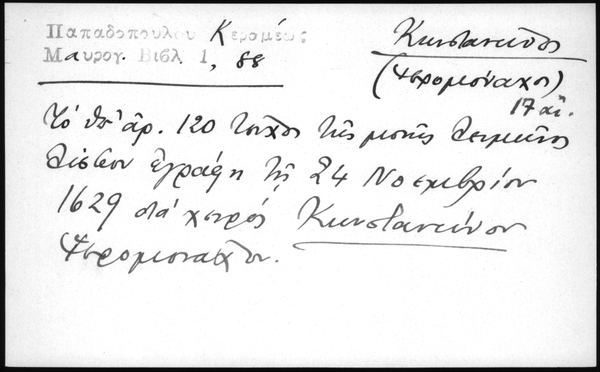 Παπαδοπούλου Κεραμέως
Μαυρογ. Βιβλ 1, 88
Κωνσταντῖνος
(Ἱερομόναχος)
17 αἰ.
Τό ὑπ' ἀρ. 120 τεῦχος τῆς μονῆς Λειμῶνος
Λέσβου ἐγράφη τῇ 24 Νοεμβρίου
1629 διά χειρός Κωνσταντίνου
Ἱερομονάχου.